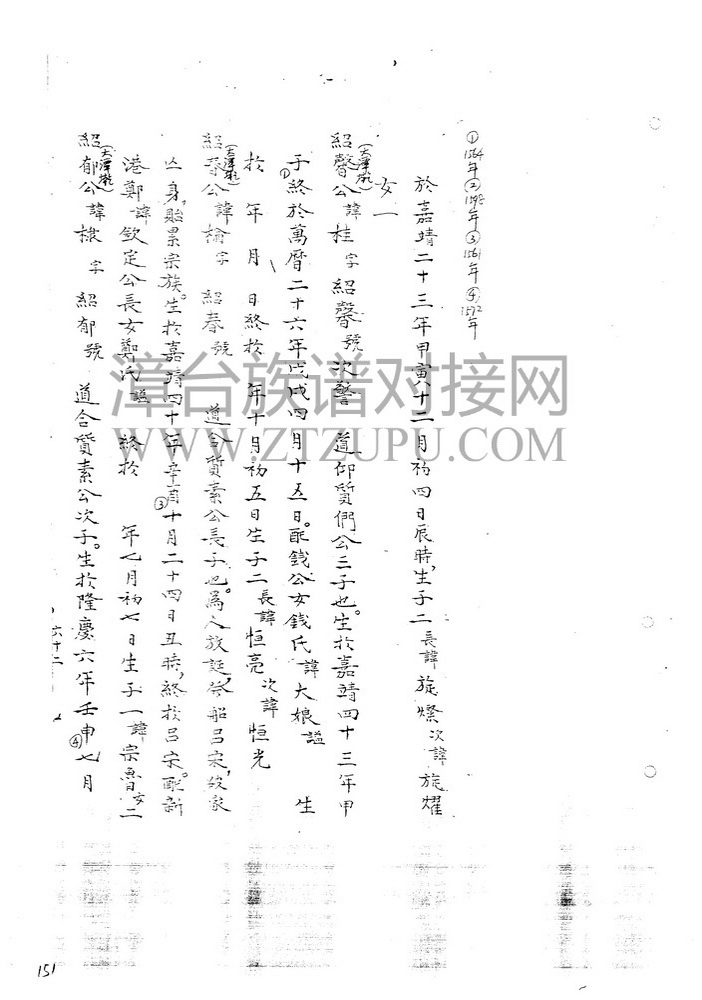 ①1564年②1598年③1561年④1572年
於嘉靖二十三年甲寅十二月初四日辰時，生子二 長諱旋燦 次諱旋燿
女一
紹馨公（大澤社）諱桂 字紹馨 號次馨 道仰質們公三子也。生於嘉靖四十三年甲
子①終於萬曆二十六年戊戌四月十五日。配錢公女錢氏 諱大娘 謚 生
於 年 月 日終於 年十月初五日生子二 長諱恒亮 次諱恒光
紹春公（大澤社）諱榆 字紹春 號 道合質素公長子也。為人放誕，發船呂宋，敗家
亡身，貽累宗族。生於嘉靖四十年辛酉③十月二十四日丑時，終於呂宋。配新
港鄭 諱欽定公長女鄭氏 謚 終於 年七月初七日生子一 諱宗魯 女二
紹郁公（大澤社）諱棣 字紹郁 號 道合質素公次子。生於隆慶六年壬申④七月
六十二
漳台族谱对接网
WWW.ZTZUPU.COM
151